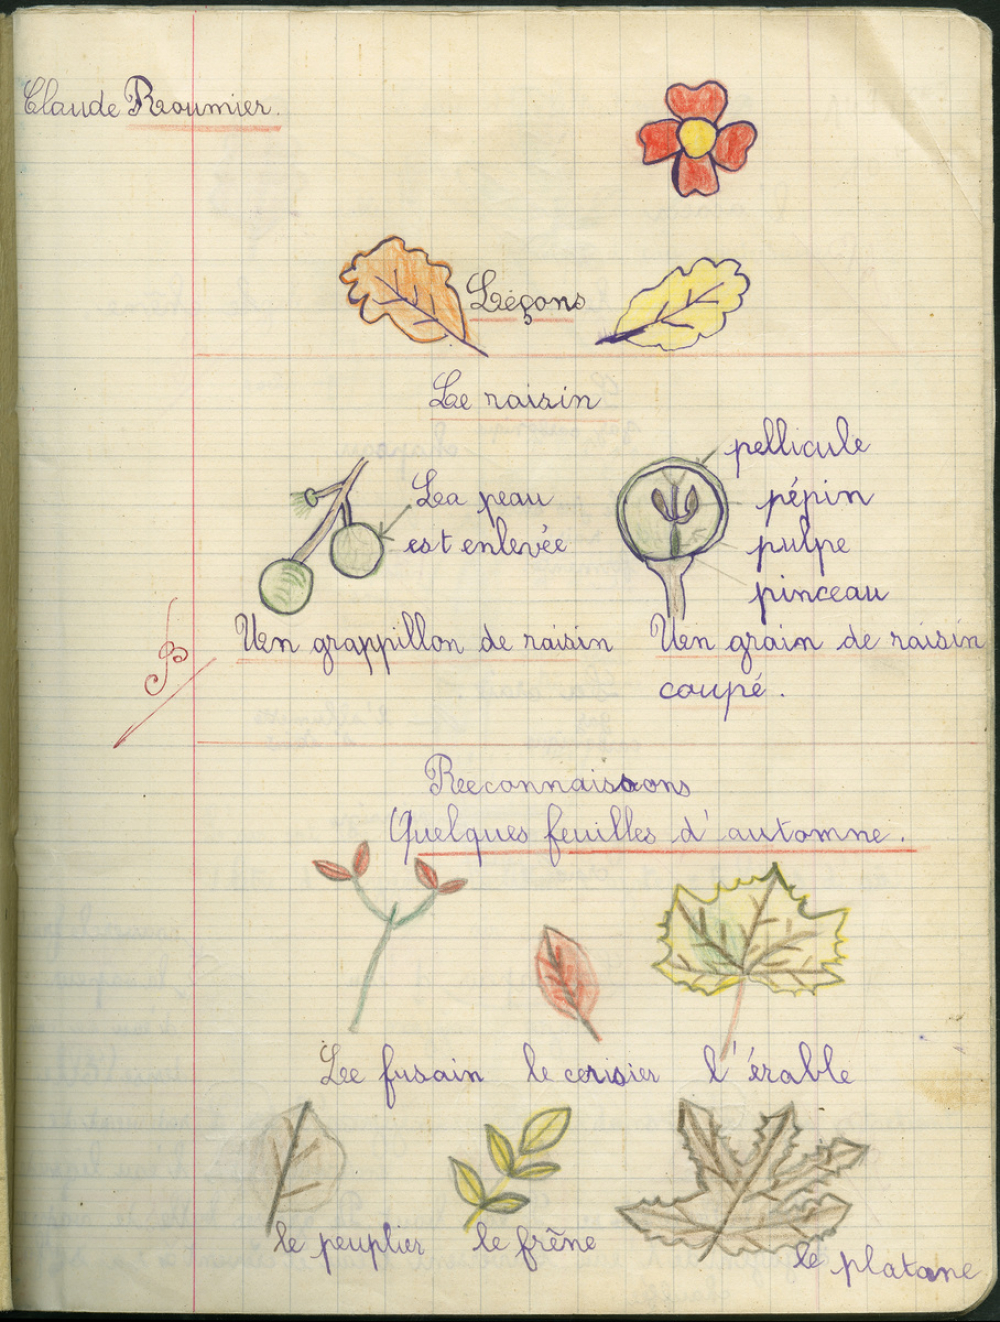 Claude Roumier.
Leçons
Le raisin
pellicule
La peau
pépin
est enlevée
pulpe
pinceau
Un grappillon de raisin
Un grain de raisin
coupé.
B
Reconnaissons
Quelques feuilles d'automne.
Le fusain le cerisier l'érable
le peuplier le frêne le platane